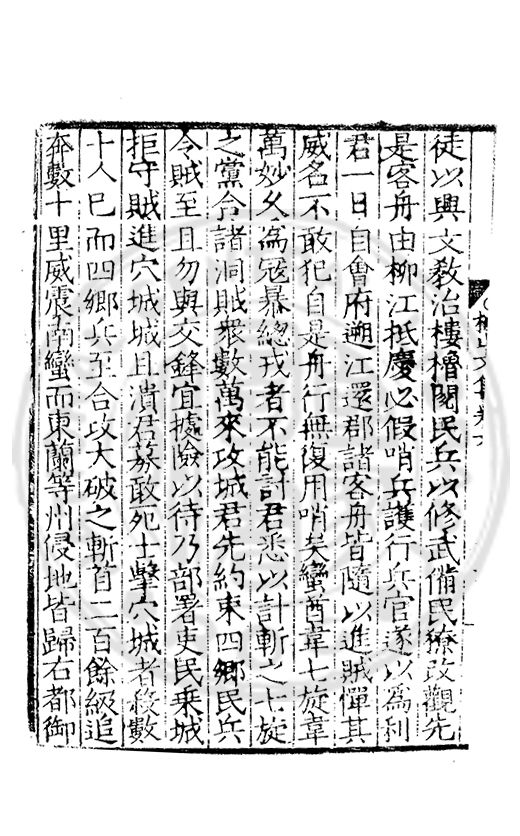 徒以興文敎治樓櫓閱民兵以修武備民獠改觀先
是客舟由柳江抵慶必假哨兵護行兵官遂以爲利
君一日自會府遡江還郡諸客舟皆隨以進賊憚其
威名不敢犯自是舟行無復用哨矣蠻酋韋七旋韋
萬妙久爲冦暴總戎者不能討君悉以計斬之七旋
之黨合諸洞賊衆數萬來攻城君先約束四鄉民兵
令賊至且勿與交鋒宜據險以待乃部署吏民乗城
拒守賊進穴城城且潰君募敢死士擊穴城者殺數
十人已而四鄉兵至合攻大破之斬首二百餘級追
奔數十里威震南蠻而東蘭等州侵地皆歸右都御